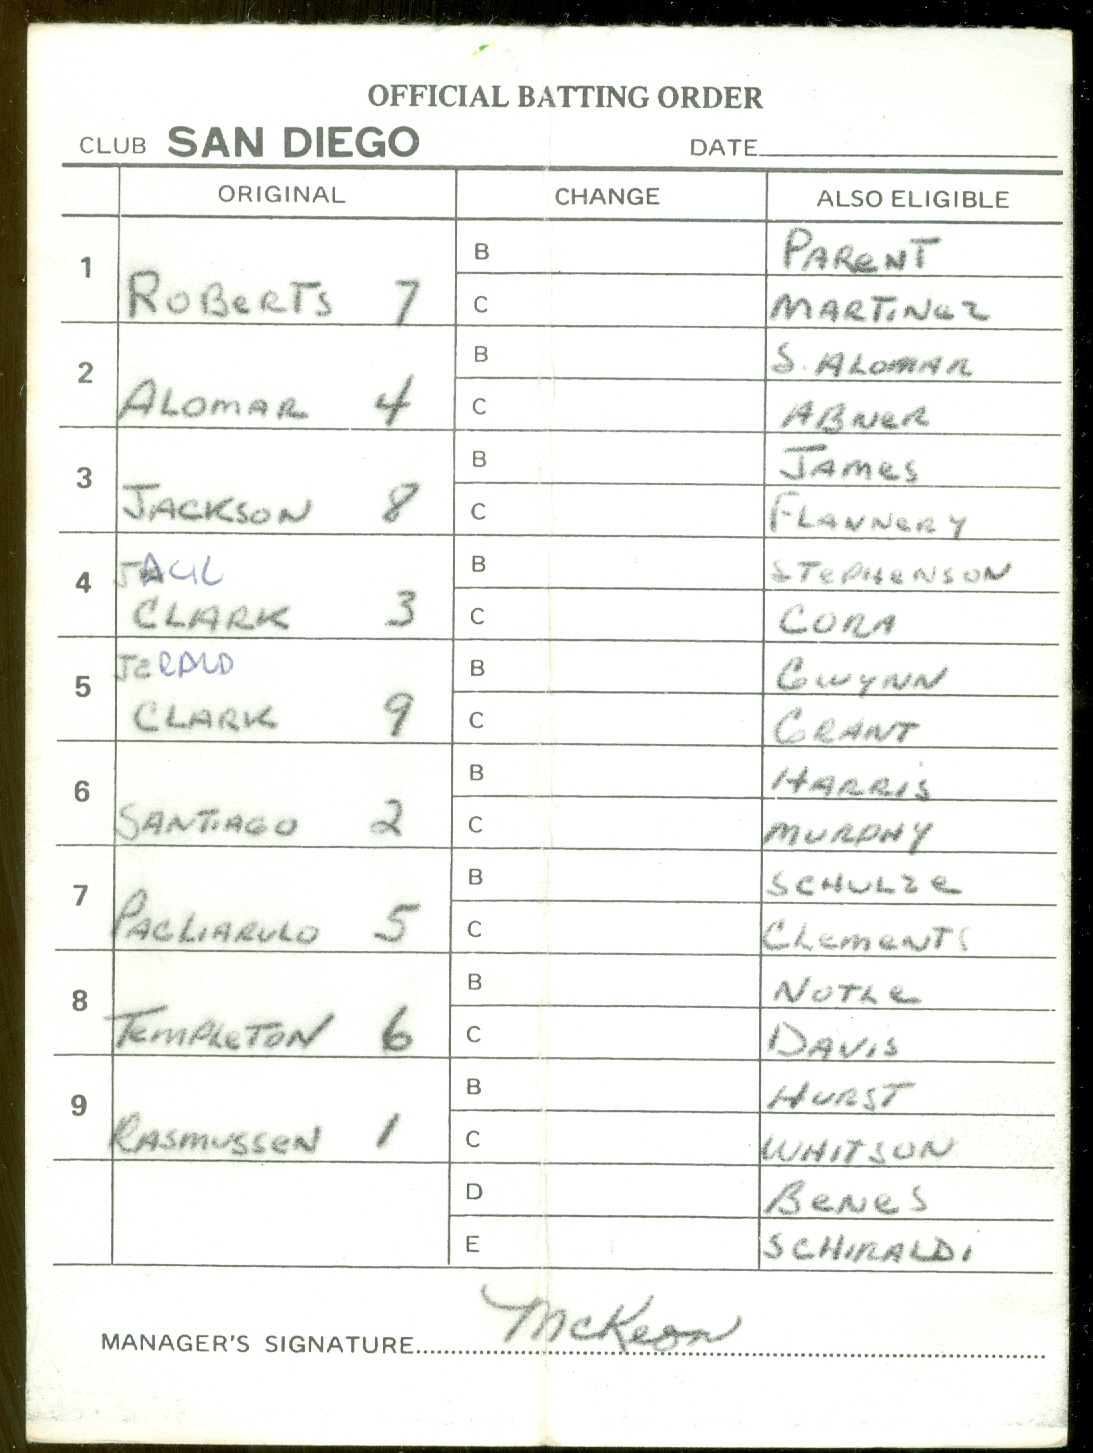 OFFICIAL BATTING ORDER
CLUB SAN DIEGO DATE
ORIGINAL CHANGE ALSO ELIGIBLE
1 ROBERTS 7 B PARENT
C MARTINEZ
2 ALOMAR 4 B S. ALOMAR
C ABNER
3 JACKSON 8 B JAMES
C FLANNERY
4 JACK CLARK 3 B STEPHENSON
C CORA
5 JERALD CLARK 9 B GWYNN
C GRANT
6 SANTIAGO 2 B HARRIS
C MURPHY
7 PAGLIARULO 5 B SCHULZE
C CLEMENTS
8 TEMPLETON 6 B NOTLE
C DAVIS
9 RASMUSSEN 1 B HURST
C WHITSON
D BENES
E SCHIRALDI
MANAGER'S SIGNATURE McKeon